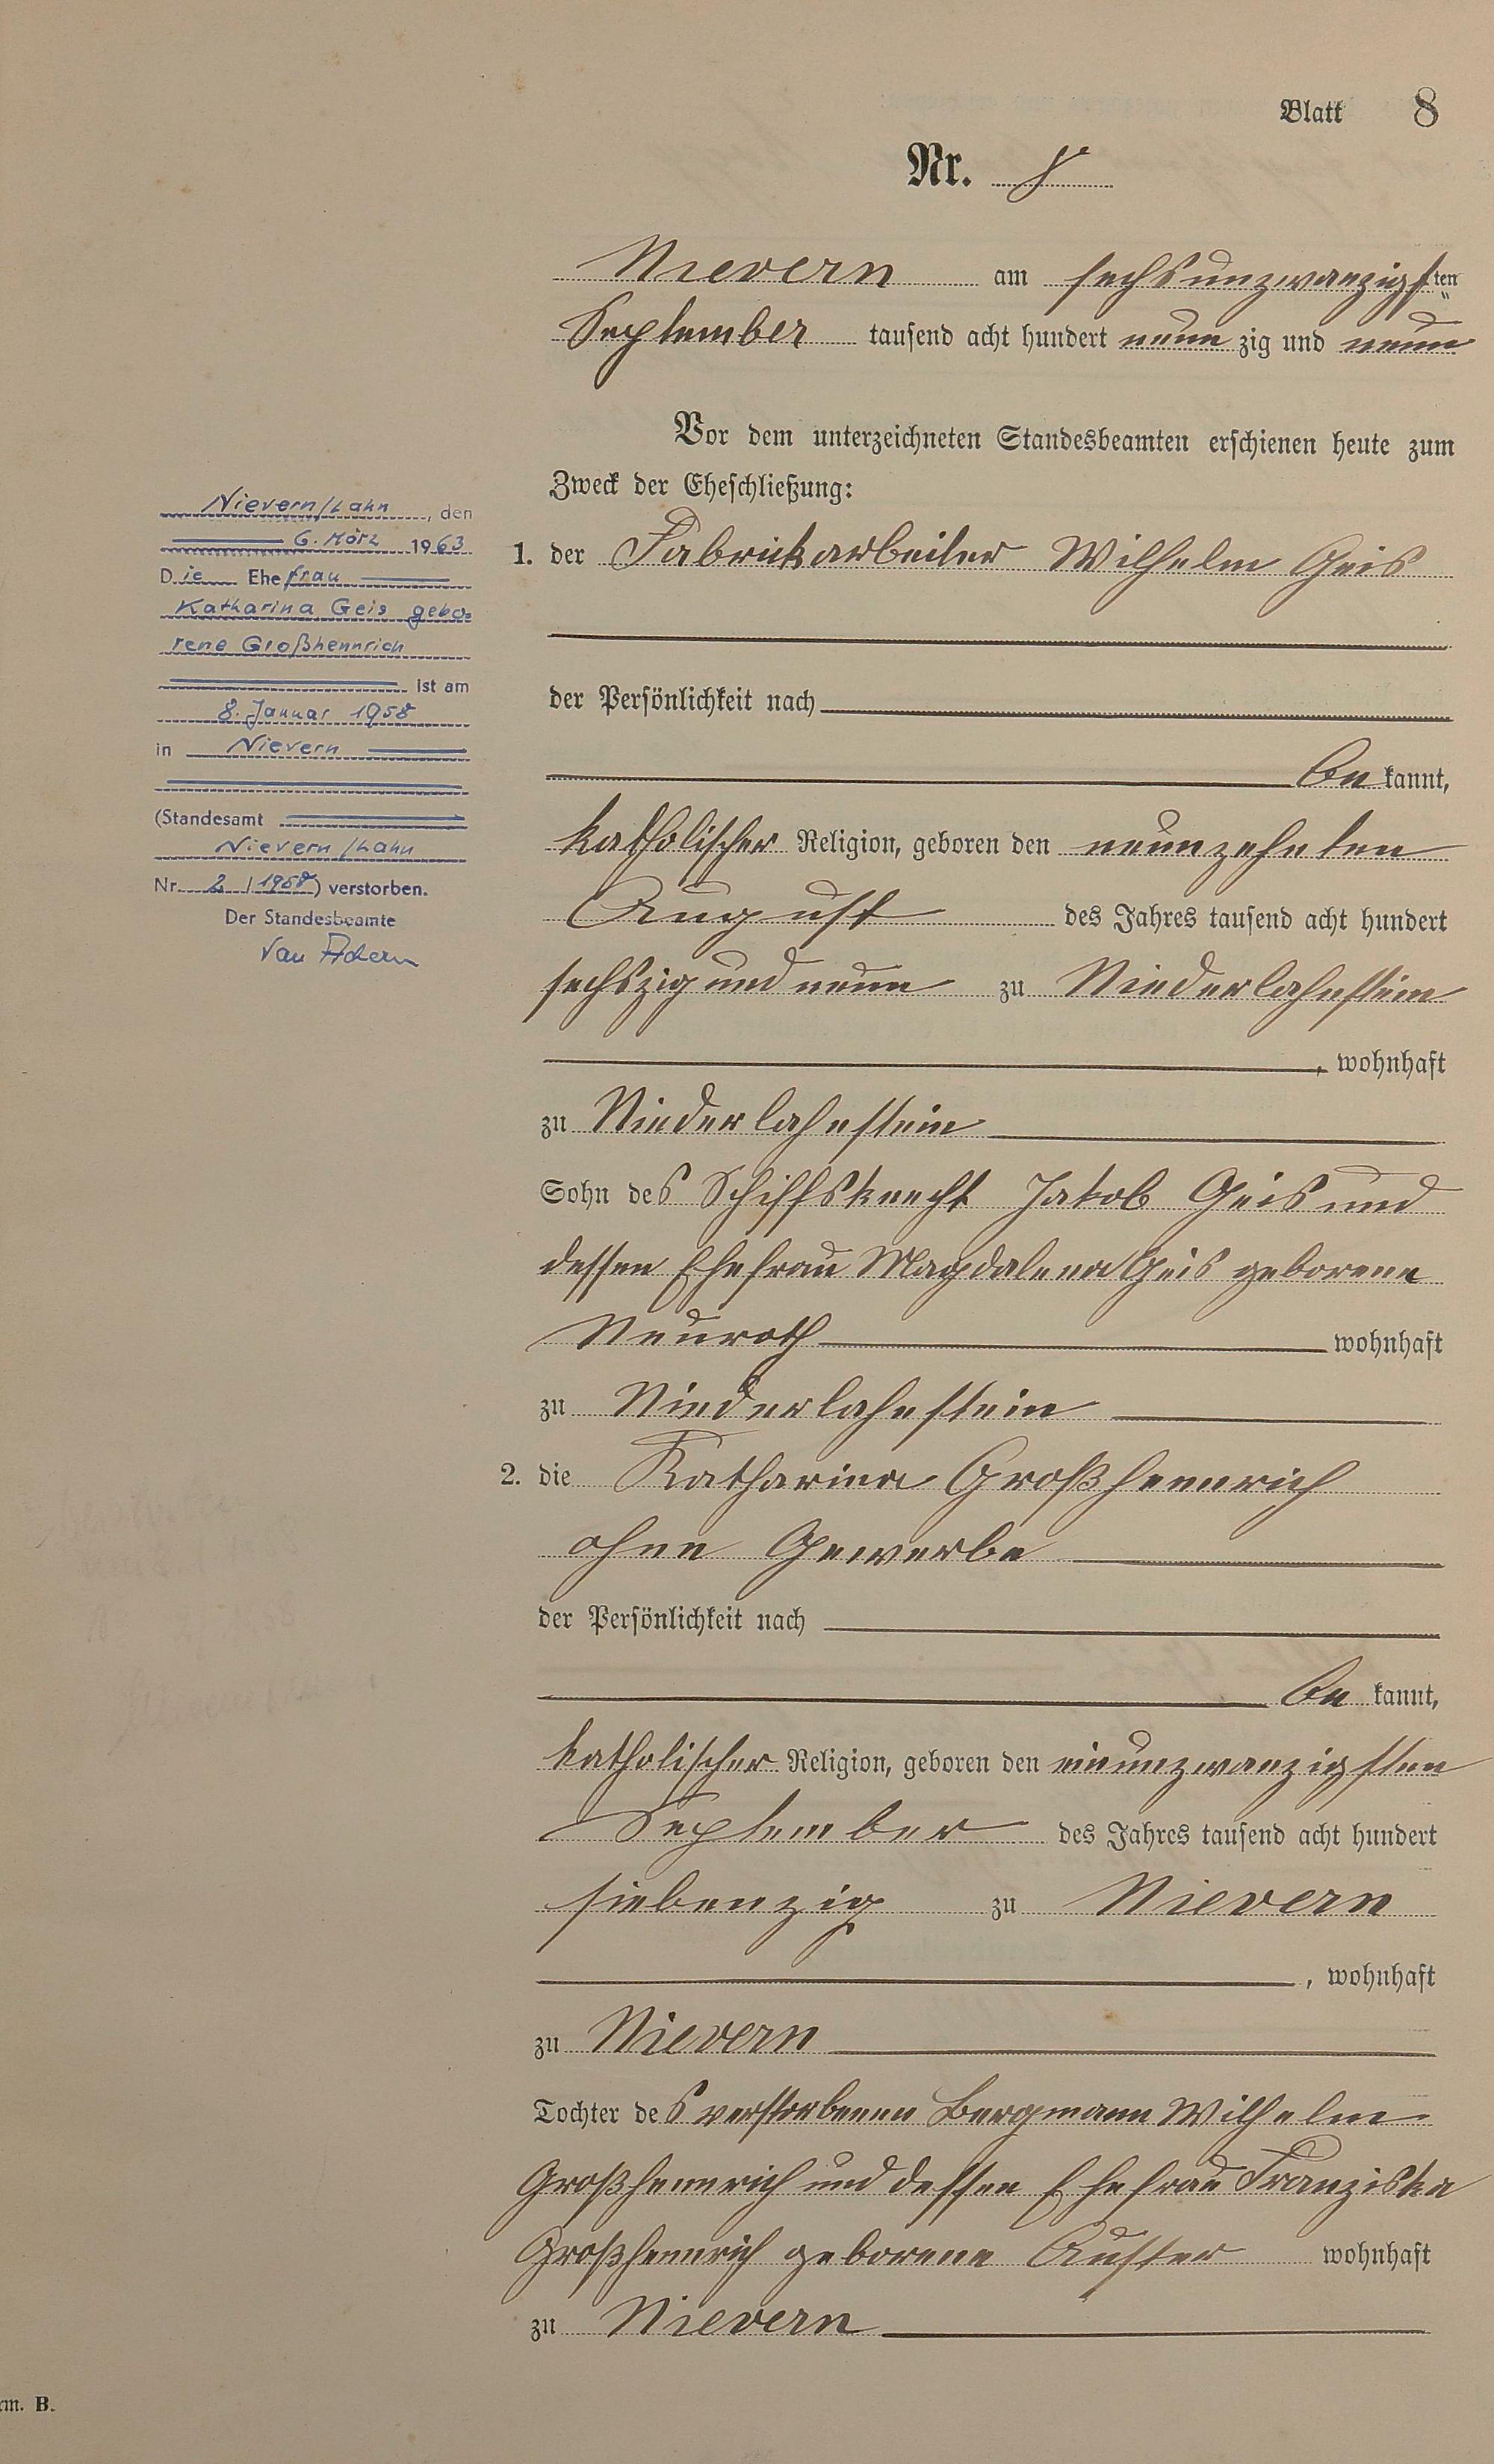 Blatt 8
Nr. 8
Nievern am sechsunzwanzigsten
September tausend acht hundert neunzig und neun
Vor dem unterzeichneten Standesbeamten erschienen heute zum
Zweck der Eheschließung:
1. der Fabrikarbeiter Wilhelm Geis
der Persönlichkeit nach
bekannt,
katholischer Religion, geboren den neunzehnten
August des Jahres tausend acht hundert
sechszig und neun zu Niederlahnstein
, wohnhaft
zu Niederlahnstein
Sohn des Schiffsknecht Jakob Geis und
dessen Ehefrau Magdalena Geis geborene
Neuroth wohnhaft
zu Niederlahnstein
2. die Katharina Großhennrich
ohne Gewerbe
der Persönlichkeit nach
bekannt,
katholischer Religion, geboren den einunzwanzigsten
September des Jahres tausend acht hundert
siebenzig zu Nievern
, wohnhaft
zu Nievern
Tochter des verstorbenen Bergmann Wilhelm
Großhennrich und dessen Ehefrau Franziska
Großhennrich geborene Auster wohnhaft
zu Nievern
Nievern/Lahn, den
6. März 1963
Die Ehefrau
Katharina Geis gebo=
rene Großhennrich
ist am
8. Januar 1958
in Nievern
(Standesamt
Nievern/Lahn
Nr. 2 / 1958) verstorben.
Der Standesbeamte
rm. B.